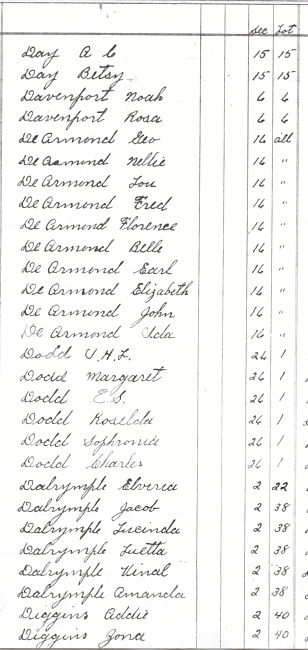 Sec Lot
Day A C 15 15
Day Betsy 15 15
Davenport Noah 6 6
Davenport Rosa 6 6
De Armond Geo 16 all
De Armond Nellie 16 "
De Armond Lou 16 "
De Armond Fred 16 "
De Armond Florence 16 "
De Armond Belle 16 "
De Armond Earl 16 "
De Armond Elizabeth 16 "
De Armond John 16 "
De Armond Ida 16 "
Dodd V.H.L. 26 1
Dodd Margaret 26 1
Dodd E.S. 26 1
Dodd Roselda 26 1
Dodd Sophronia 26 1
Dodd Charles 26 1
Dalrymple Elveria 2 22
Dalrymple Jacob 2 38
Dalrymple Lucinda 2 38
Dalrymple Luetta 2 38
Dalrymple 2 38
Dalrymple Amanda 2 38
Diggins Addie 2 40
Diggins Zona 2 40